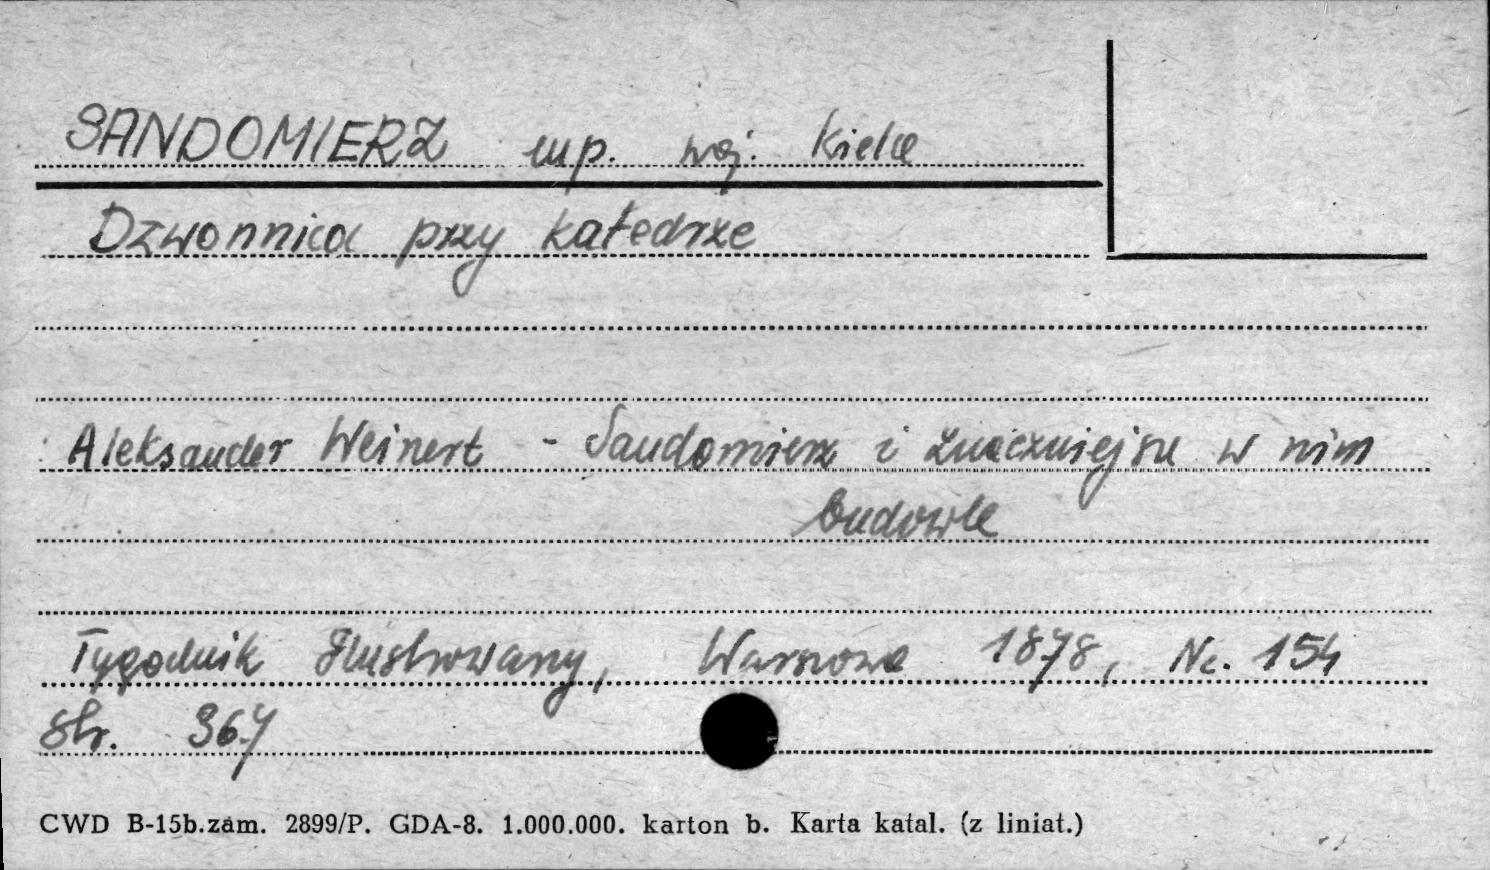 SANDOMIERZ mp. woj. Kielce
Dzwonnica przy katedrze
Aleksander Weinert - Sandomierz i znaczniejsze w nim
budowle
Tygodnik Ilustrowany, Warszawa 1878, Nr. 154
str. 367
CWD B-15b.zam. 2899/P. GDA-8. 1.000.000. karton b. Karta katal. (z liniat.)